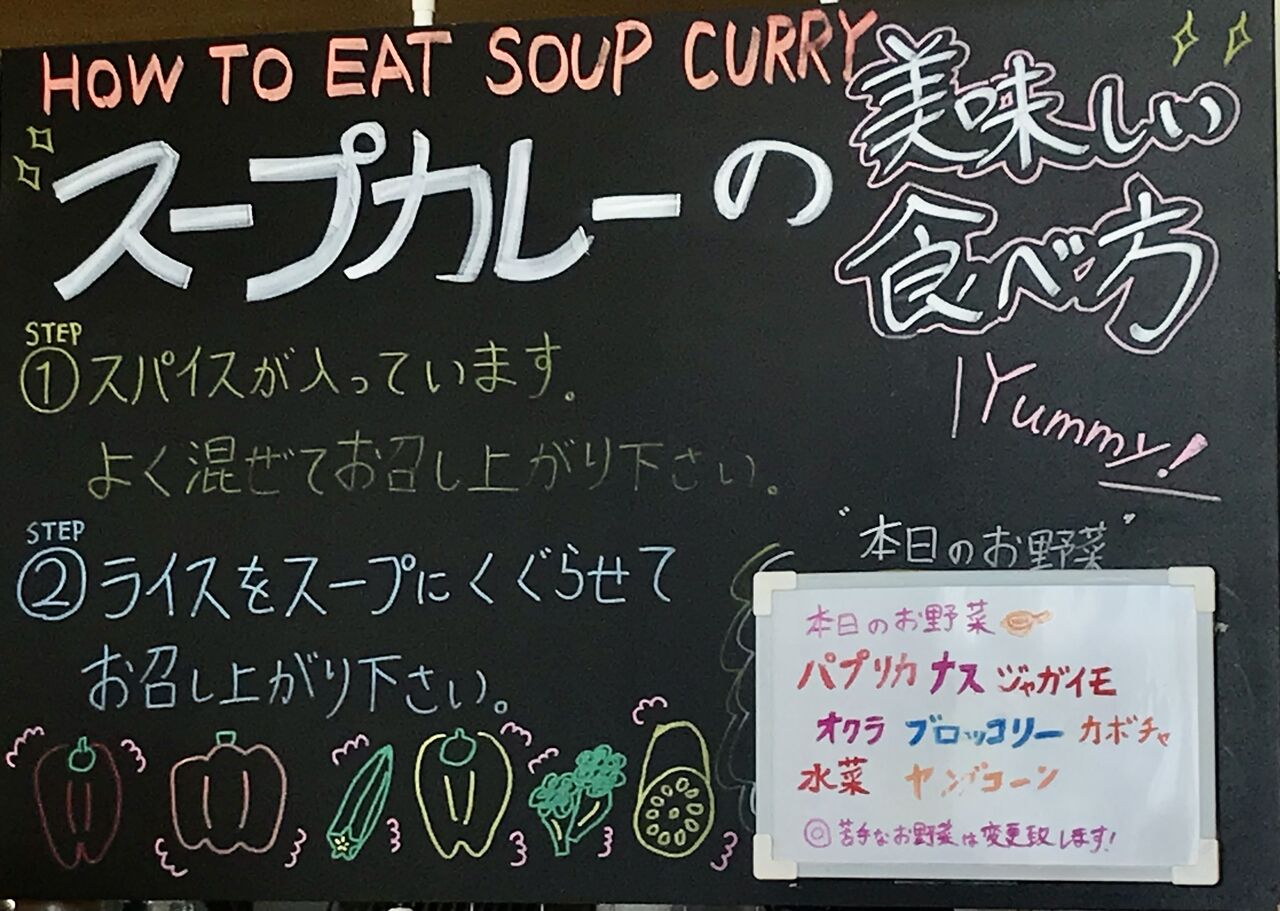 HOW TO EAT SOUP CURRY
スープカレーの
美味しい
食べ方
Yummy!
STEP
① スパイスが入っています。
よく混ぜてお召し上がり下さい。
STEP
② ライスをスープにくぐらせて
お召し上がり下さい。
"本日のお野菜"
本日のお野菜
パプリカ ナス ジャガイモ
オクラ ブロッコリー カボチャ
水菜 ヤングコーン
◎苦手なお野菜は変更致します!